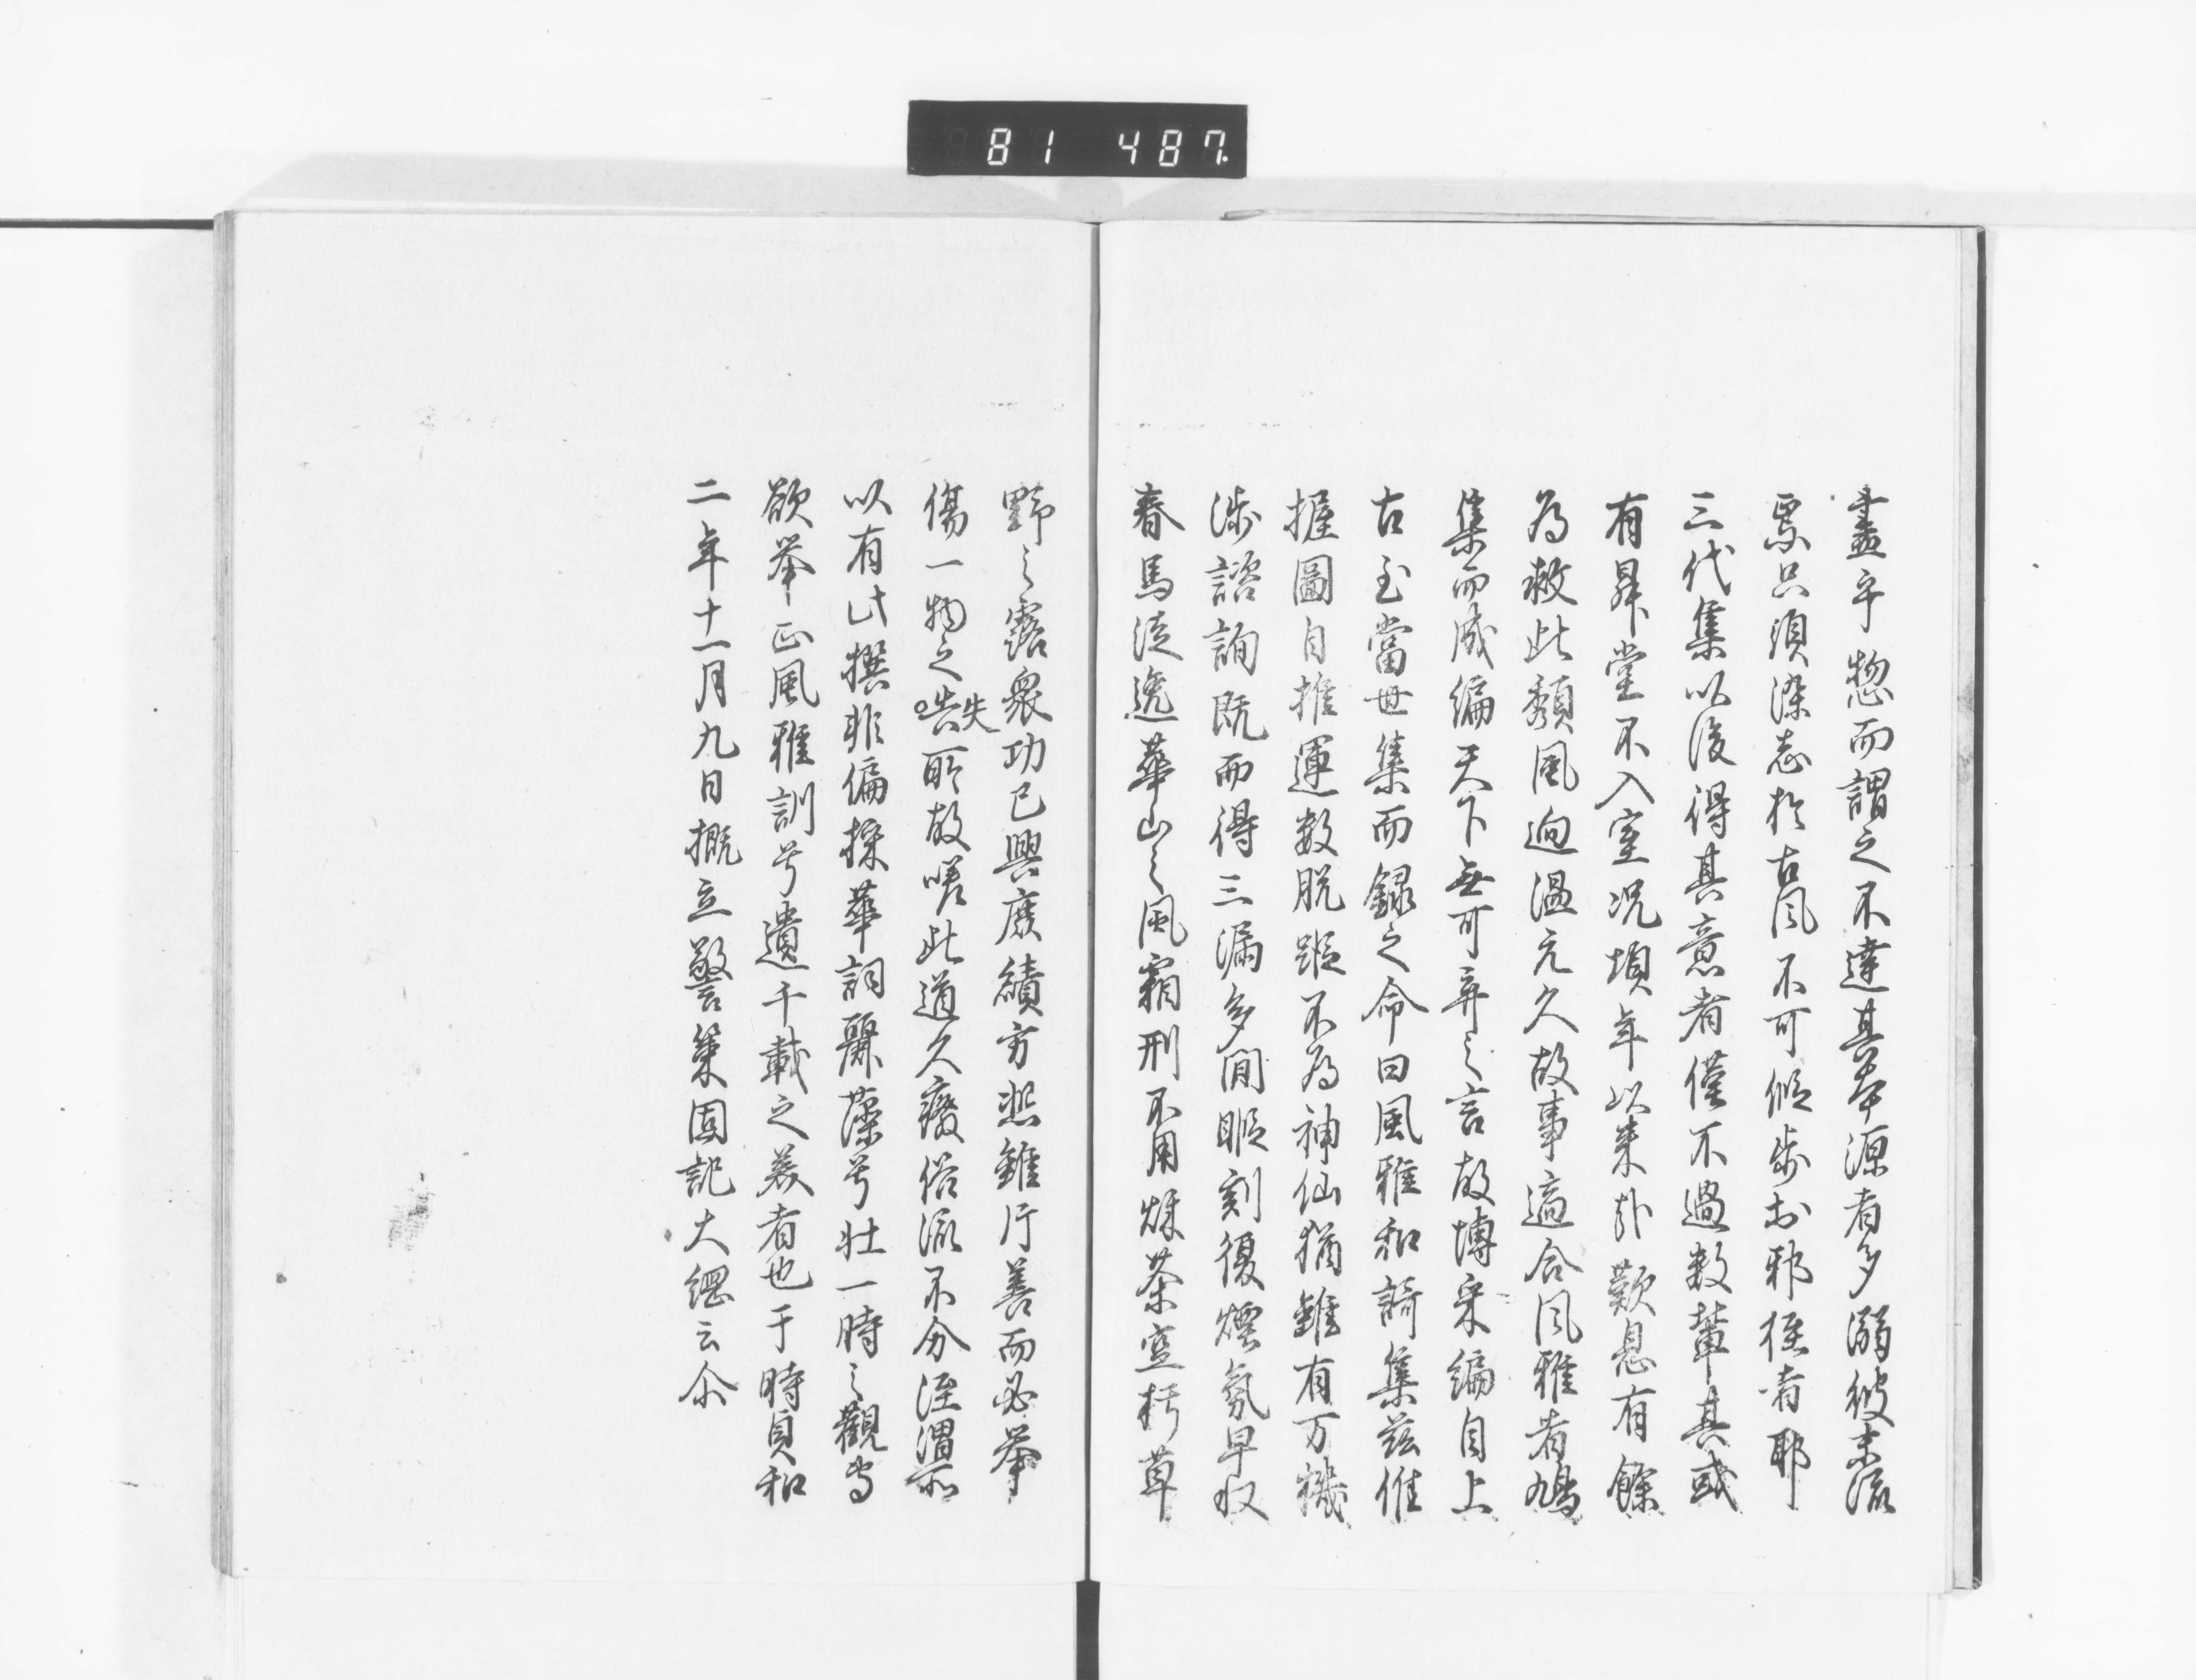 81 487.
盡乎惣而謂之不達其本源者多溺彼末流
只須染志於古風不可假步於邪徑者耶
三代集以後得其意者僅不過数輩其或
有昇堂不入室况頃年以来歎息有餘
為救此頽風迴温元久故事適合風雅者鳩
集而成編天下無可弃之言故博采編自上
古至當世集而録之命曰風雅和謌集茲惟
握圖自推運数脱蹤不為神仙猶雖有万機
渉諮詢既而得三漏多間暇刻復煙氛早収
春馬徒逸華山之風霜刑不用秣茶空朽草
野之露衆功已興庶績方凞雖片善而必挙
傷一物之失所故嗟此道久癈俗流不分涇渭所
以有此撰非偏採華詞麗藻兮壮一時之觀専
欲挙正風雅訓兮遺千載之美者也于時貞和
二年十一月九日概立警策固記大綱云尒